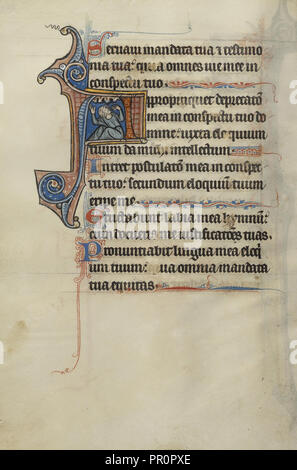 Servavi mandata tua et testimo
nia tua: quia omnes vie mee in
conspectu tuo
Appropinquet deprecatio
mea in conspectu tuo do
mine: iuxta eloquium
tuum da michi intellectum
Intret postulatio mea in conspec
tu tuo: secundum eloquium tuum
eripe me
labia mea hymnum:
cum docueris me iustificationes tuas.
Pronuntiabit lingua mea eloq
uium tuum: quia omnia mandata
tua equitas
alamy
PR0PXE
www.alamy.com